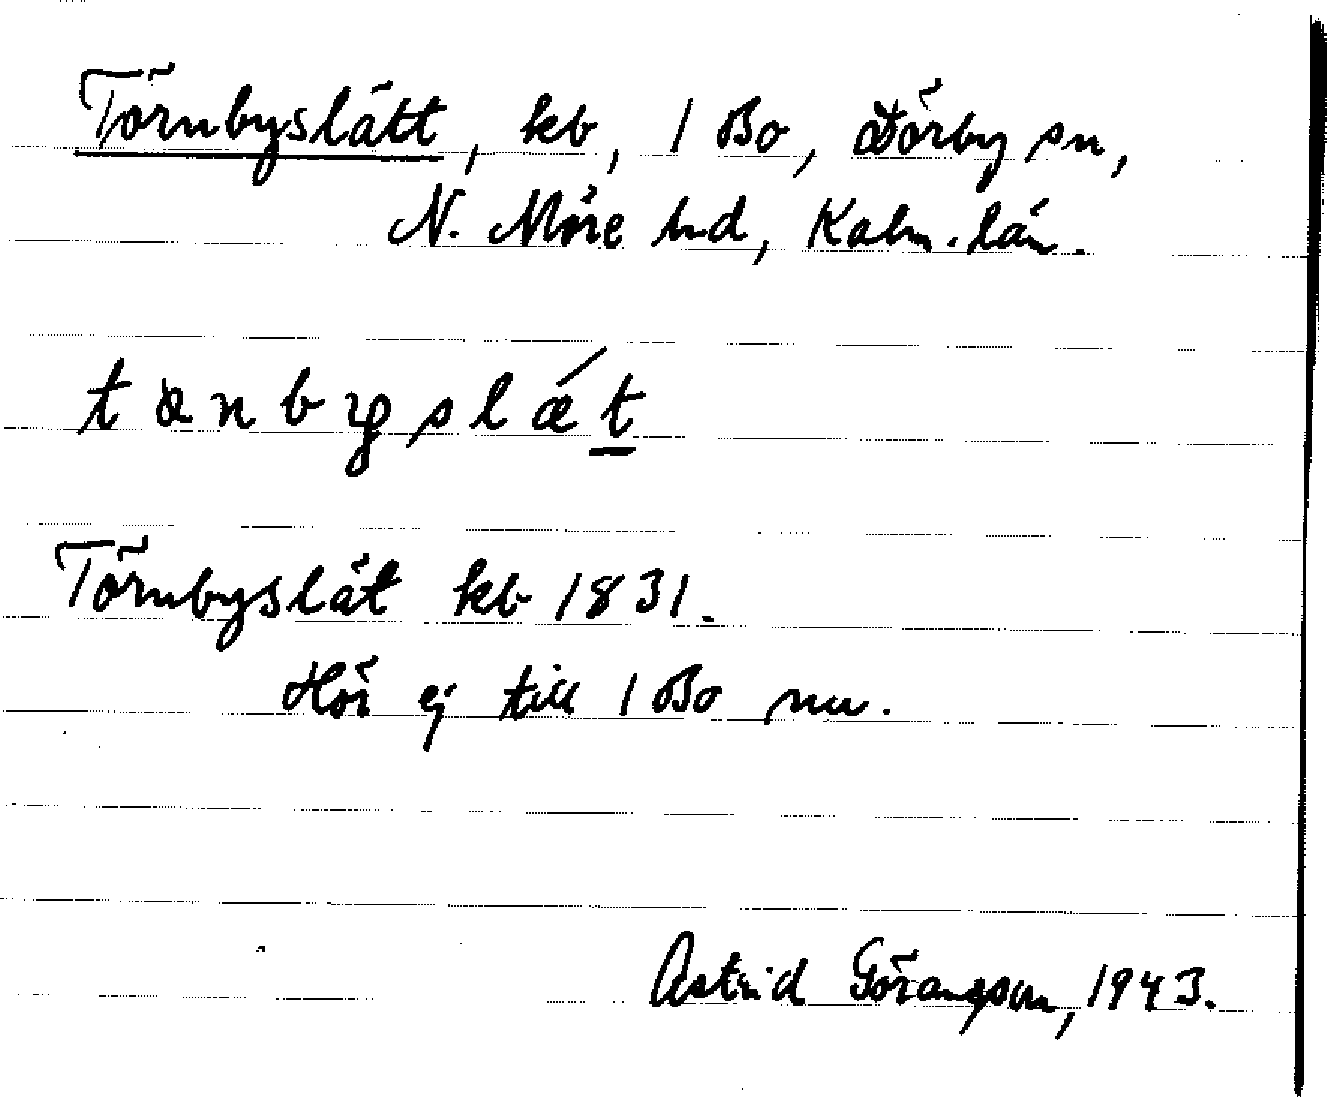 Törnbyslätt, kb, 1 Bo, Dörby sn,
N. Möre hd, Kalm. län.
tɶnbyslǽt
Törnbyslät kb 1831.
Hör ej till 1 Bo nu.
Astrid Göransson, 1943.